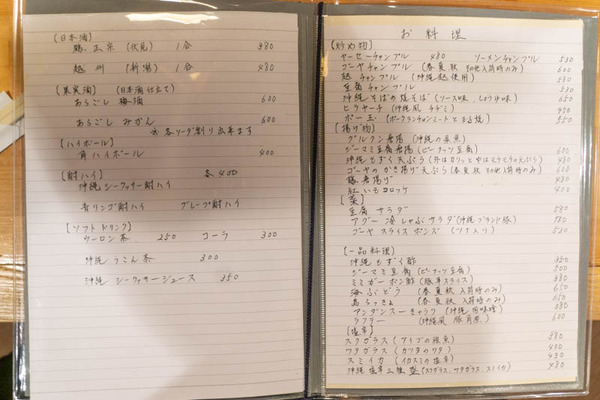 [日本酒]
鶴正宗 (伏見) 1合 480
越州 (新潟) 1合 480
[果実酒] (日本酒仕立て)
あらごし 梅酒 600
あらごし みかん 600
※各ソーダ割り出来ます
[ハイボール]
角ハイボール 400
[酎ハイ] 各400
沖縄 シークヮサー酎ハイ
青リンゴ酎ハイ グレープ酎ハイ
[ソフトドリンク]
ウーロン茶 250 コーラ 300
沖縄 うこん茶 300
沖縄 シークヮサージュース 350
お料理
[炒め物]
ヤーセーチャンプル 480 ソーメンチャンプル 530
ゴーヤチャンプル (春夏秋 初他入荷時のみ) 600
麩チャンプル (沖縄麩使用) 580
豆腐チャンプル 530
沖縄そばの焼そば (ソース味、しょうゆ味) 650
ヒラヤーチ (沖縄風 チヂミ)
ポー玉 (ポークランチョンミートと玉子焼) 550
[揚げ物]
グルクン唐揚 (沖縄の県魚)
ジーマミ豆腐唐揚 (ピーナッツ豆腐) 600
沖縄もずく天ぷら
ゴーヤのかき揚げ天ぷら (春夏秋 初他入荷時のみ)
鶏唐揚げ
紅いもコロッケ 400
[菜]
豆腐サラダ 580
アグー冷しゃぶサラダ (沖縄ブランド豚) 780
ゴーヤスライスポンズ (ツナ入り) 530
[一品料理]
沖縄もずく酢 350
ジーマミ豆腐 (ピーナッツ豆腐) 500
ミミガーポン酢 (豚耳スライス) 380
海ぶどう (春夏秋 入荷時のみ) 650
島らっきょ (春夏秋 入荷時のみ)
アンダンスーきゅうり
ラフテー (沖縄風 豚角煮) 600
[塩辛]
スクガラス (アイゴの稚魚)
ワタガラス (カツオのワタ)
スミイカ (イカスミの塩辛) 430
沖縄塩辛三種盛 (スクガラス、ワタガラス、スミイカ) 980